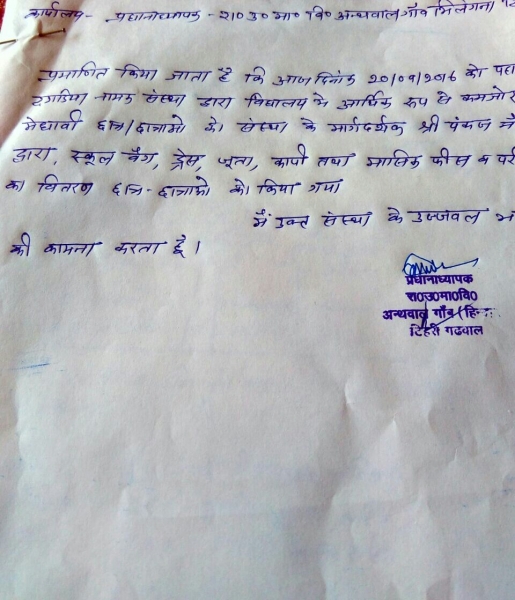 कार्यालय- प्रधानाध्यापक - रा०उ०मा०वि० अन्थवाल गाँव भिलंगना
प्रमाणित किया जाता है कि आज दिनांक 20/09/2016 को
नामक संस्था द्वारा विद्यालय मे आर्थिक रूप से कमजोर
मेधावी छात्र/छात्राओ को संस्था के मार्गदर्शक श्री पंकज मै
द्वारा, स्कूल बैग, ड्रेस, जूता, कापी तथा मासिक फीस व
का वितरण छात्र-छात्राओ को किया गया
मैं उक्त संस्था के उज्जवल भ
की कामना करता हूँ।
प्रधानाध्यापक
रा०उ०मा०वि०
अन्थवाल गाँव (हि
टिहरी गढवाल